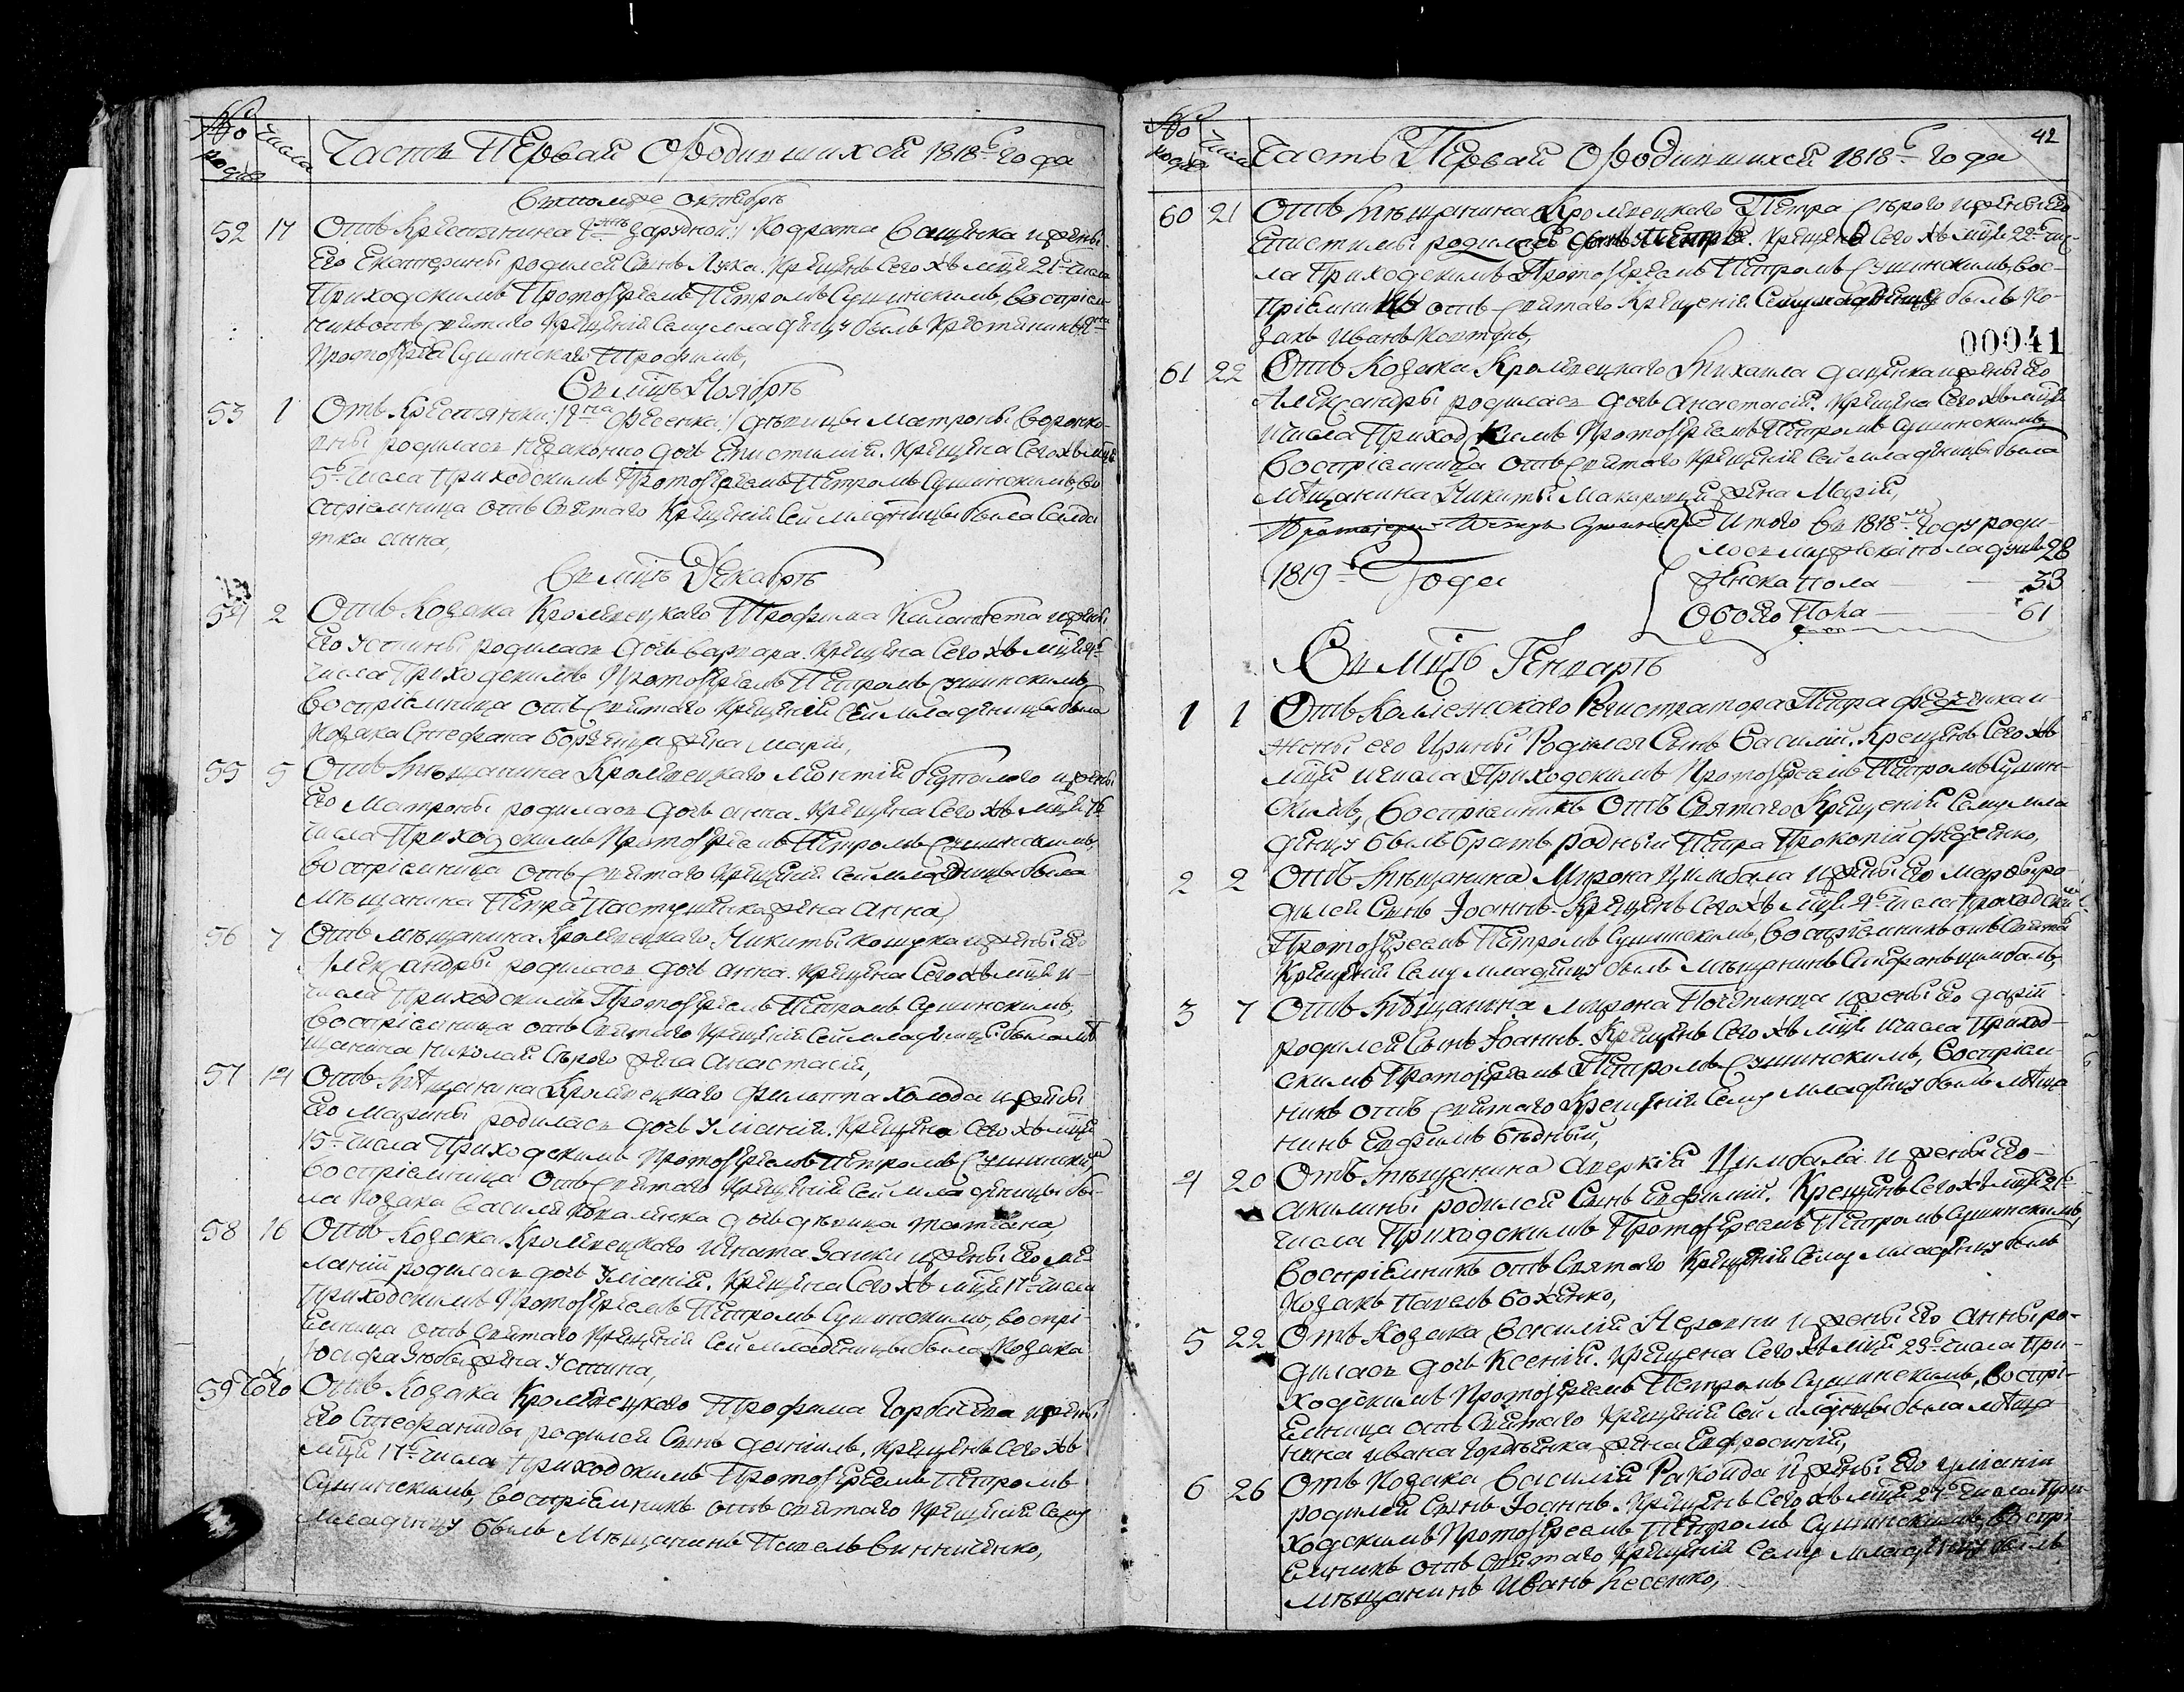 No родив числа Часть Первая О родившихся 1818го года
Въ ... октябрь
52 17 Отъ Крестьянина г.жи Зарудной :/ Кодрата Ващенка и жены
Его Екатерины родился Сынъ Лука. Крещенъ Сего жъ мца 21го числа
Приходскимъ Протоіереемъ Петромъ Сушинскимъ, воспріем
никъ отъ Святаго Крещенія Сему младенцу былъ Крестянинъ
Протоіерея Сушинскаго Трофимъ,
Въ мцѣ Ноябрѣ
53 1 Отъ Крестянки :/ г.на Фесенка :/ дѣвицы Матроны Воронко
вны родилась незаконно дочь Епистимія. Крещена Сего жъ мца
5го числа Приходскимъ Протоіереемъ Петромъ Сушинскимъ, во
спріемница отъ Святаго Крещенія Сей младеницы была Салда
тка Анна,
Въ мцѣ Декабрѣ
54 2 Отъ Козака Кременецкаго Трофима и жены
Его Устины родилась дочь Варвара. Крещена Сего жъ мца 4го
числа Приходскимъ Протоіереемъ Петромъ Сушинскимъ
Воспріемница отъ Святаго Крещенія Сей младеницы была
Козака Стефана жена Марія,
55 5 Отъ мѣщанина Кременецкаго и жены
Его Матроны родилась дочь Анна. Крещена Сего жъ мца 7го
числа Приходскимъ Протоіереемъ Петромъ Сушинскимъ,
воспріемница отъ Святаго Крещенія Сей младеницы была
Мѣщанина Петра Пастушенка жена Анна,
56 7 Отъ мѣщанина Кременецкаго Никиты Кошука и жены Его
Александры родилась дочь Анна. Крещена Сего жъ мца и
числа Приходскимъ Протоіереемъ Петромъ Сушинскимъ,
воспріемница отъ Святаго Крещенія Сей младеницы была мѣ
щанина Николая Сѣрого жена Анастасія,
57 14 Отъ мѣщанина Кременецкаго Филиппа Холода и жены
Его Марины родилась дочь Уліанія. Крещена Сего жъ мца
15го числа Приходскимъ Протоіереемъ Петромъ Сушинскимъ
Воспріемница отъ Святаго Крещенія Сей младеницы бы
ла Козака Василя Коваленка дочь дѣвица Татіана,
58 16 Отъ Козака Кременецкаго Игната Заики и жены Его Ме
ланіи родилась дочь Уліанія. Крещена Сего жъ мца 17го числа
Приходскимъ Протоіереемъ Петромъ Сушинскимъ, воспрі
емница отъ Святаго Крещенія Сей младеницы была Козака
Іосифа жена Устина,
59 Того Отъ Козака Кременецкаго Трофима и жены
Его Стефаниды родился Сынъ Даніилъ. Крещенъ Сего жъ
мца 17го числа Приходскимъ Протоіереемъ Петромъ
Сушинскимъ, Воспріемникъ отъ Святаго Крещенія Сему
Младенцу былъ Мѣщанинъ Павелъ Винниченко,
No родив числа Часть Первая О родившихся 1818го года 42
60 21 Отъ мѣщанина Кременецкаго Петра Сѣрого и жены Его
Епистиміи родился Сынъ Петръ. Крещенъ Сего жъ мца 22го чис
ла Приходскимъ Протоіереемъ Петромъ Сушинскимъ, Вос
пріемникъ отъ Святаго Крещенія Сему младенцу былъ Ко
закъ Иванъ Коптевъ,
00041
61 22 Отъ Козака Кременецкаго Михаила Даценка и жены Его
Александры родилась дочь Анастасія. Крещена Сего жъ мца и
числа Приходскимъ Протоіереемъ Петромъ Сушинскимъ
Воспріемница отъ Святаго Крещенія Сей младеницы была
мѣщанина Никиты жена Марія,
Протоіерей Петръ Сушинскій Итого въ 1818м году роди
лось мужеска пола душъ 28
1819го Года женска пола 33
Обоего Пола 61
Въ мцѣ Генварѣ
1 1 Отъ Колежского Регистратора Петра Феденка и
жены его Ирины Родился Сынъ Василій. Крещенъ Сего жъ
мца и числа Приходскимъ Протоіереемъ Петромъ Сушин
скимъ, воспріемникъ отъ Святаго Крещенія Сему мла
денцу былъ братъ родный Петра Прокопій Феденко,
2 2 Отъ мѣщанина Мирона Цимбала и жены Его Марфы ро
дился Сынъ Іоаннъ. Крещенъ Сего жъ мца 4го числа Приходским
Протоіереемъ Петромъ Сушинскимъ, Воспріемникъ отъ Святаго
Крещенія Сему младенцу былъ мѣщанинъ Стефанъ Цимбалъ,
3 7 Отъ мѣщанина Мирона и жены Его Даріи
родился Сынъ Іоаннъ. Крещенъ Сего жъ мца и числа Приход
скимъ Протоіереемъ Петромъ Сушинскимъ, Воспріем
никъ отъ Святаго Крещенія Сему младенцу былъ мѣща
нинъ Евфимъ Бѣдный,
4 20 Отъ мѣщанина Аверкія Цимбала и жены Его
Акилины родился Сынъ Евфимій. Крещенъ Сего жъ мца 21го
числа Приходскимъ Протоіереемъ Петромъ Сушинскимъ,
Воспріемникъ отъ Святаго Крещенія Сему младенцу былъ
Козакъ Павелъ Боженко,
5 22 Отъ Козака Василія и жены Его Анны ро
дилась дочь Ксенія. Крещена Сего жъ мца 23го числа При
ходскимъ Протоіереемъ Петромъ Сушинскимъ, Воспрі
емница отъ Святаго Крещенія Сей младеницы была мѣща
нина Ивана Гордѣенка жена Евфросинія,
6 26 Отъ Козака Василія Ракоида и жены Его Уліаніи
родился Сынъ Іоаннъ. Крещенъ Сего жъ мца 27го числа При
ходскимъ Протоіереемъ Петромъ Сушинскимъ, Воспрі
емникъ отъ Святаго Крещенія Сему младенцу былъ
мѣщанинъ Иванъ Лесенко,